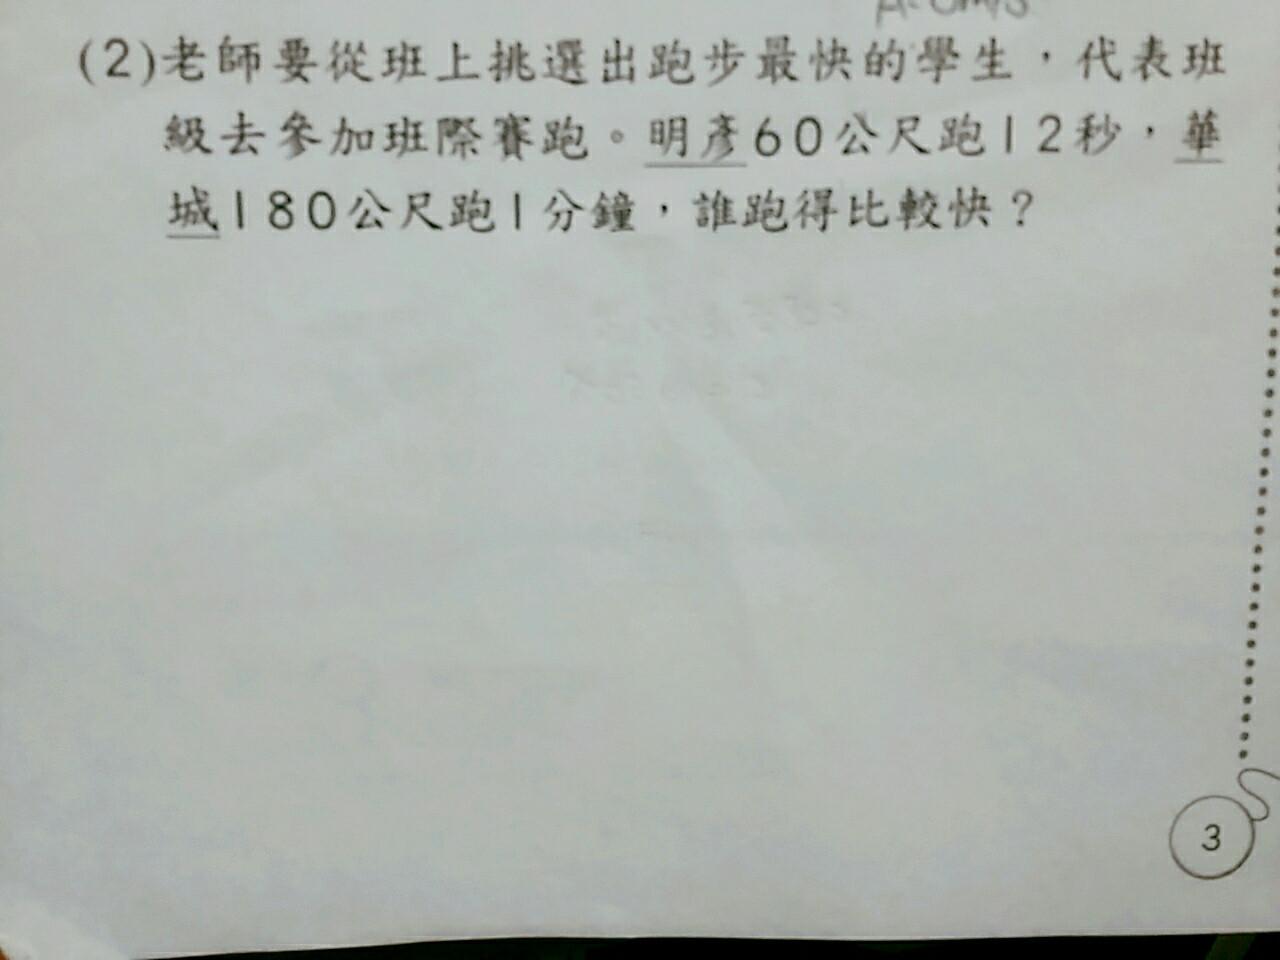 (2)老師要從班上挑選出跑步最快的學生，代表班
級去參加班際賽跑。明彥60公尺跑12秒，華
城180公尺跑1分鐘，誰跑得比較快？
3